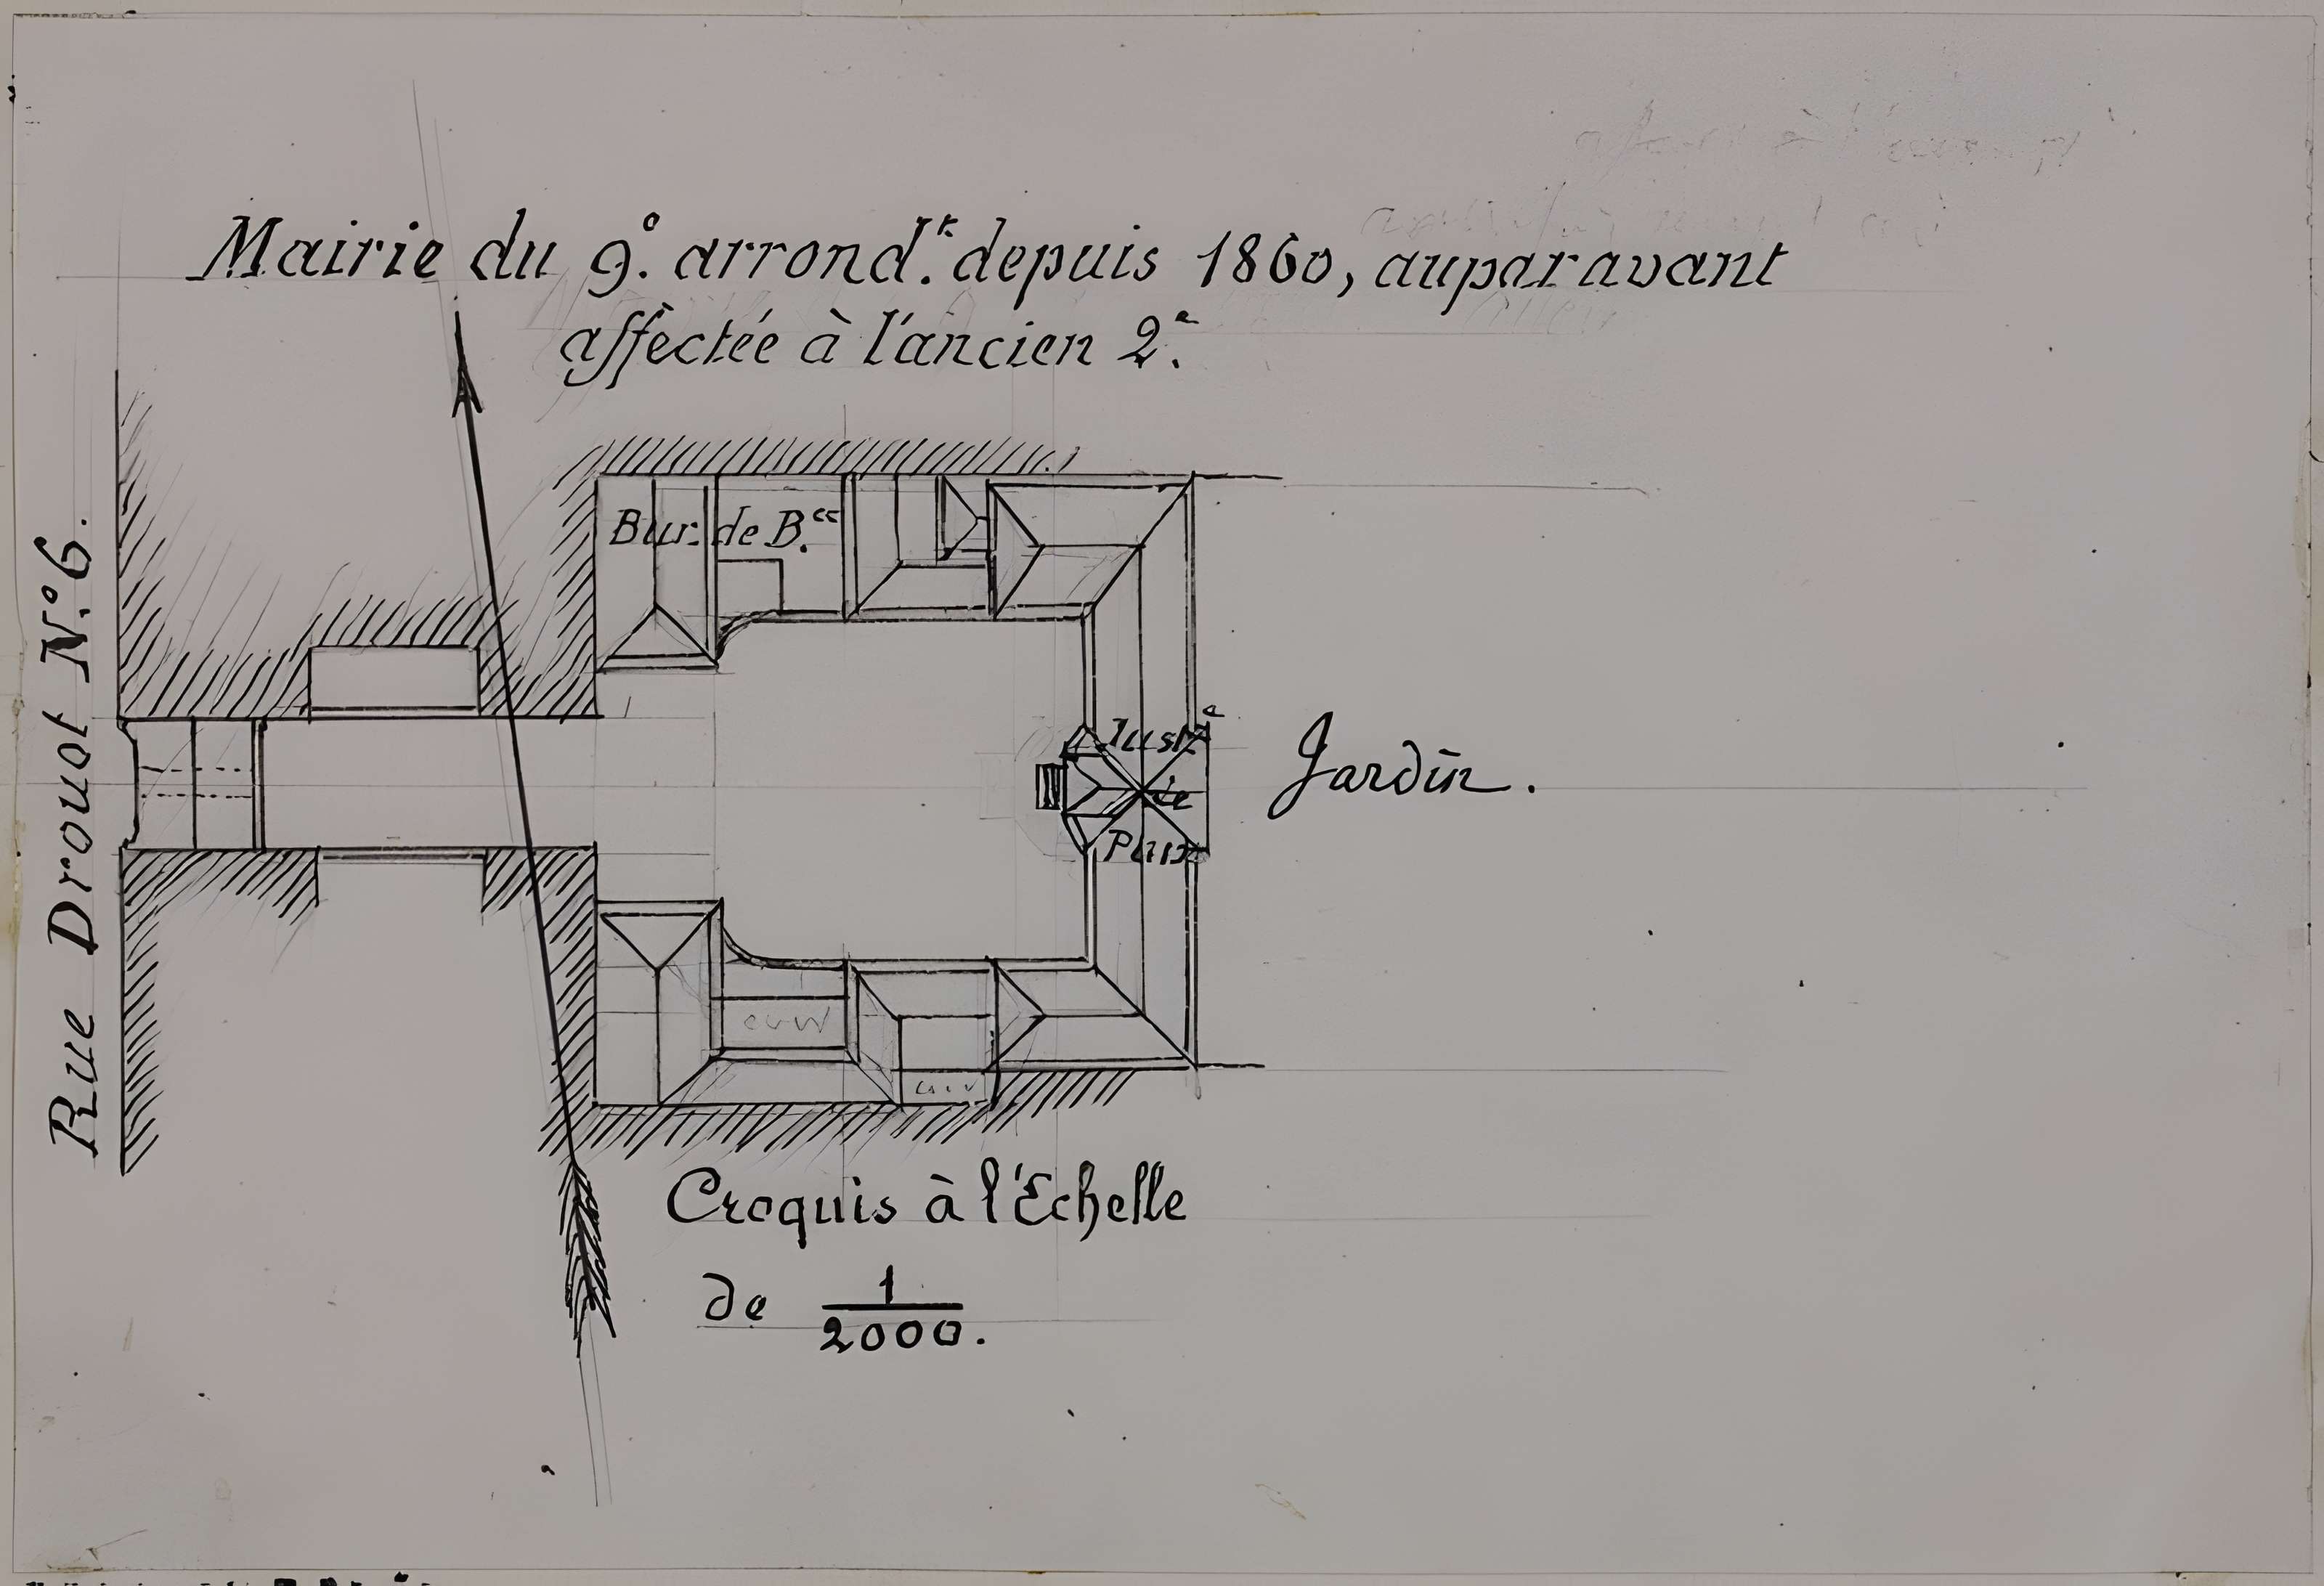 Mairie du 9e. arrondt. depuis 1860, auparavant
affectée à l'ancien 2e.
Bur. de B.ce
Rue Drouot N.o 6.
Justce
de
Paix
Jardin.
Croquis à l'Echelle
de 1/2000.